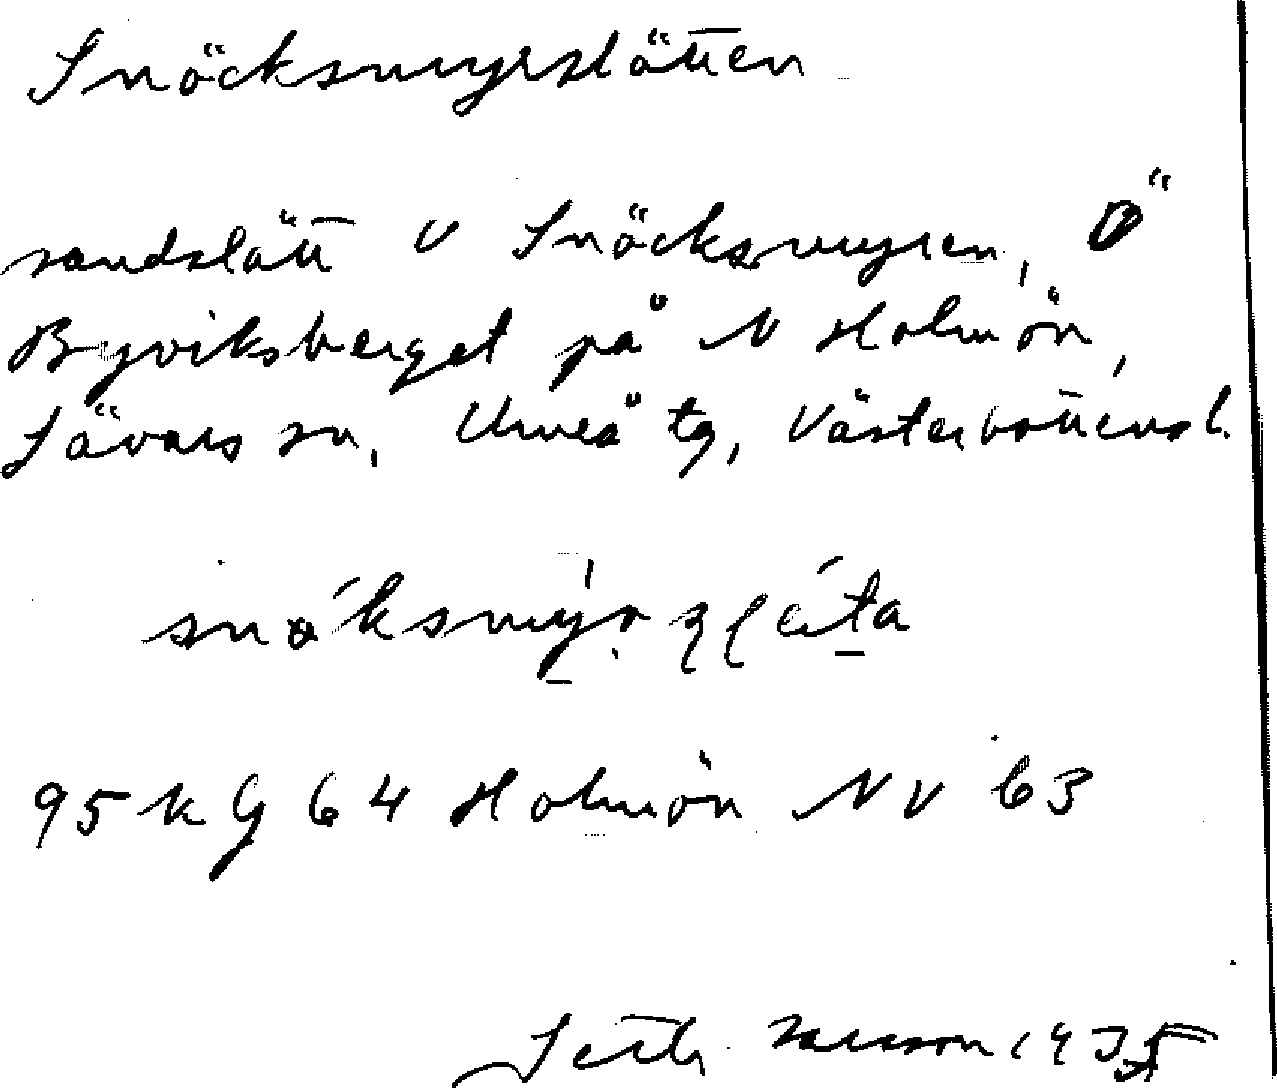 Snöcksmyrslätten
sandslätt V Snöcksmyren, Ö
Byviksberget på N Holmön,
Sävars sn, Umeå tg, Västerbottensl.
95 k G 64 Holmön NV 63
Seth Larsson 1935